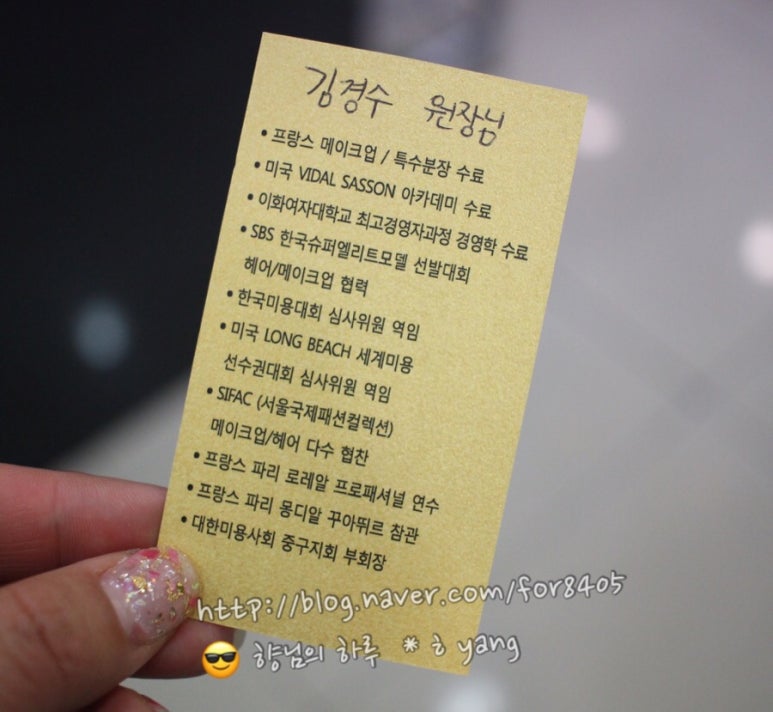 김경수 원장님
• 프랑스 메이크업 / 특수분장 수료
• 미국 VIDAL SASSON 아카데미 수료
• 이화여자대학교 최고경영자과정 경영학 수료
• SBS 한국슈퍼엘리트모델 선발대회
헤어/메이크업 협력
• 한국미용대회 심사위원 역임
• 미국 LONG BEACH 세계미용
선수권대회 심사위원 역임
• SIFAC (서울국제패션컬렉션)
메이크업/헤어 다수 협찬
• 프랑스 파리 로레알 프로패셔널 연수
• 프랑스 파리 몽디알 꾸아뛰르 참관
• 대한미용사회 중구지회 부회장
http://blog.naver.com/for8405
향님의 하루 * ㅎ yang